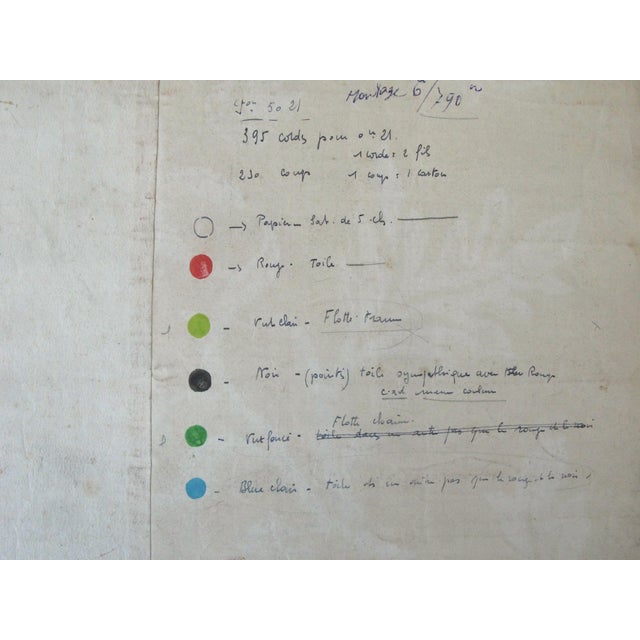 Montage 6 / 790
50 21
395 cordes pour 0m21.
1 corde = 2 fils
230. coups 1 coup = 1 carton
→ Papier - Sat. de 5 ch.
→ Rouge. Toile
1 - Vert clair - Flotté. trame
- Noir - (points) toile sympathique avec Rouge
c.a.d meme couleur
Flotté chaine.
- Vert foncé - toile dans un autre pas que le rouge et le noir
- Bleu clair - toile ds un autre pas que le rouge et le noir.